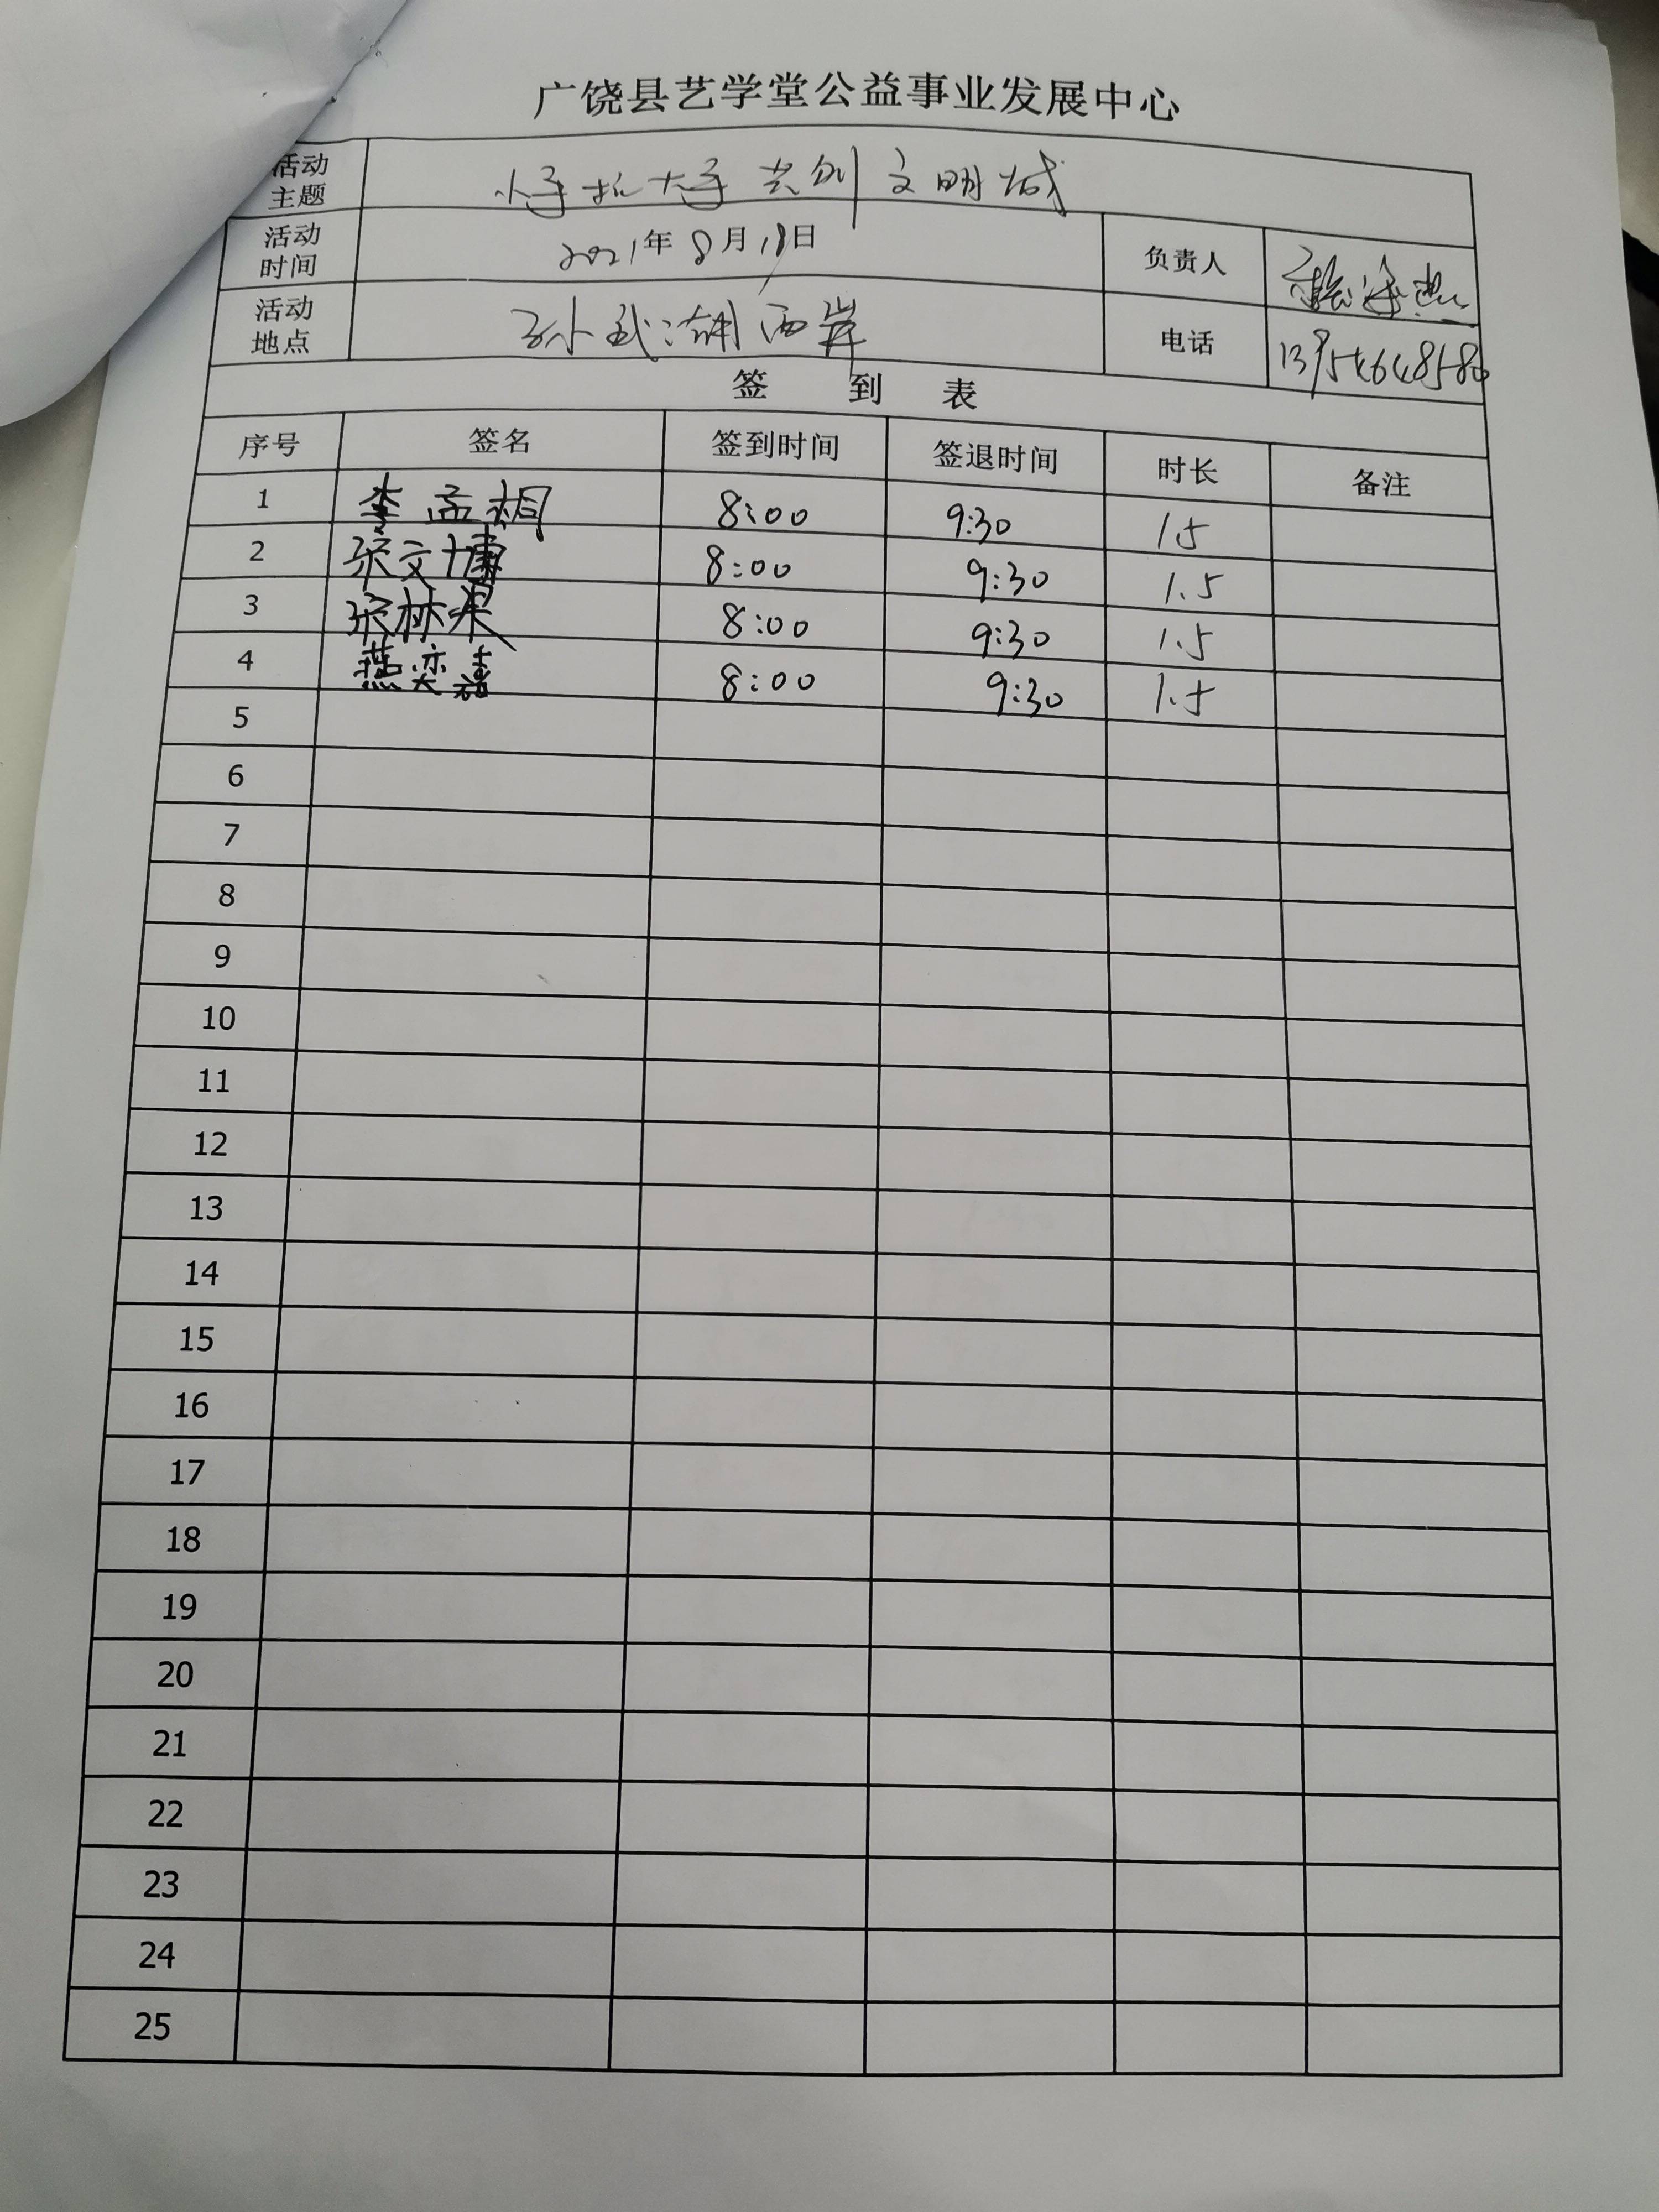 广饶县艺学堂公益事业发展中心
活动主题 小手拉大手 共创文明城
活动时间 2021年8月18日 负责人
活动地点 孙武湖西岸 电话
签到表
序号 签名 签到时间 签退时间 时长 备注
1 李孟桐 8:00 9:30 1.5
2 张文博 8:00 9:30 1.5
3 张林果 8:00 9:30 1.5
4 燕奕嘉 8:00 9:30 1.5
5
6
7
8
9
10
11
12
13
14
15
16
17
18
19
20
21
22
23
24
25